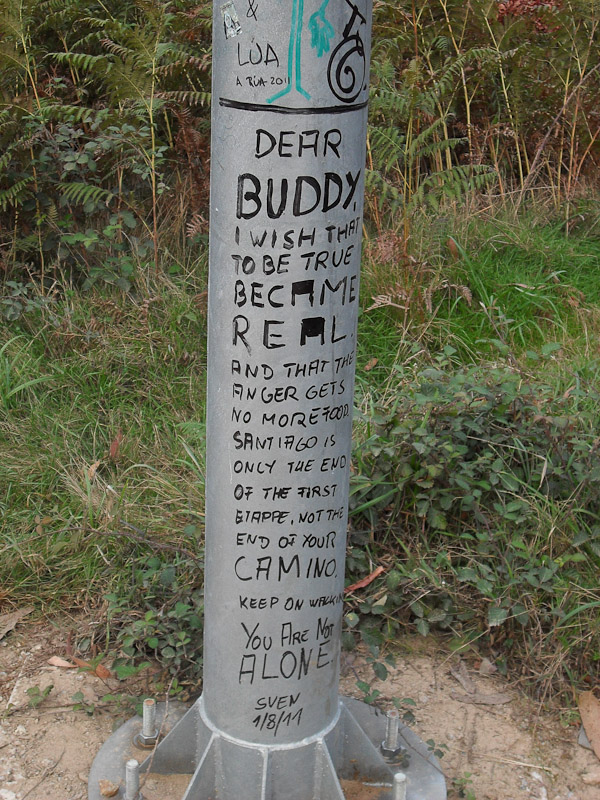 &
LÚA
A RÚA-2011
DEAR
BUDDY,
I WISH THAT
TO BE TRUE
BECAME
REAL.
AND THAT THE
ANGER GETS
NO MORE FOOD.
SANTIAGO IS
ONLY THE END
OF THE FIRST
ETAPPE, NOT THE
END OF YOUR
CAMINO.
KEEP ON WALKIN
YOU ARE NOT
ALONE.
SVEN
1/8/11